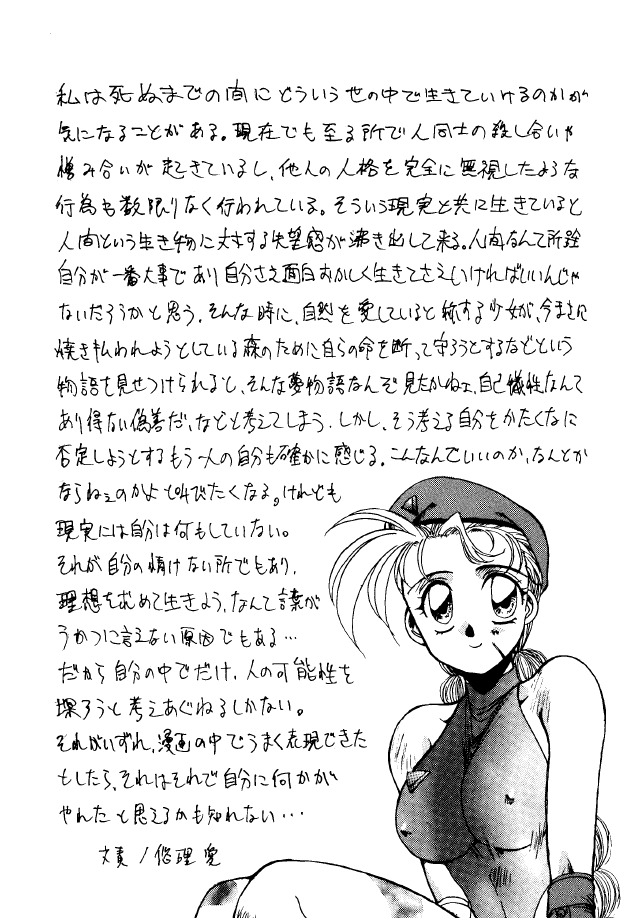 私は死ぬまでの間にどういう世の中で生きていけるのかが
気になることがある。現在でも至る所で人同士の殺し合いや
憎み合いが起きているし、他人の人格を完全に無視したような
行為も数限りなく行われている。そういう現実と共に生きていると
人間という生き物に対する失望感が沸き出して来る。人間なんて所詮
自分が一番大事であり自分さえ面白おかしく生きてさえいければいいんじゃ
ないだろうかと思う。そんな時に、自然を愛していると称する少女が、今まさに
焼き払われようとしている森のために自らの命を断って守ろうとするなどという
物語を見せつけられると、そんな夢物語なんぞ見たかねェ、自己犠性なんて
あり得ない偽善だ、などと考えてしまう。しかし、そう考える自分をかたくなに
否定しようとするもう一人の自分も確かに感じる。こんなんでいいのか、なんとか
ならねぇのかよと叫びたくなる。けれども
現実には自分は何もしていない。
それが自分の情けない所でもあり、
理想を求めて生きよう、なんて言葉が
うかつに言えない原因でもある…
だから自分の中でだけ、人の可能性を
探ろうと考えあぐねるしかない。
それがいずれ、漫画の中でうまく表現できた
としたら、それはそれで自分に何かが
やれたと思えるかも知れない…
文責/悠理愛